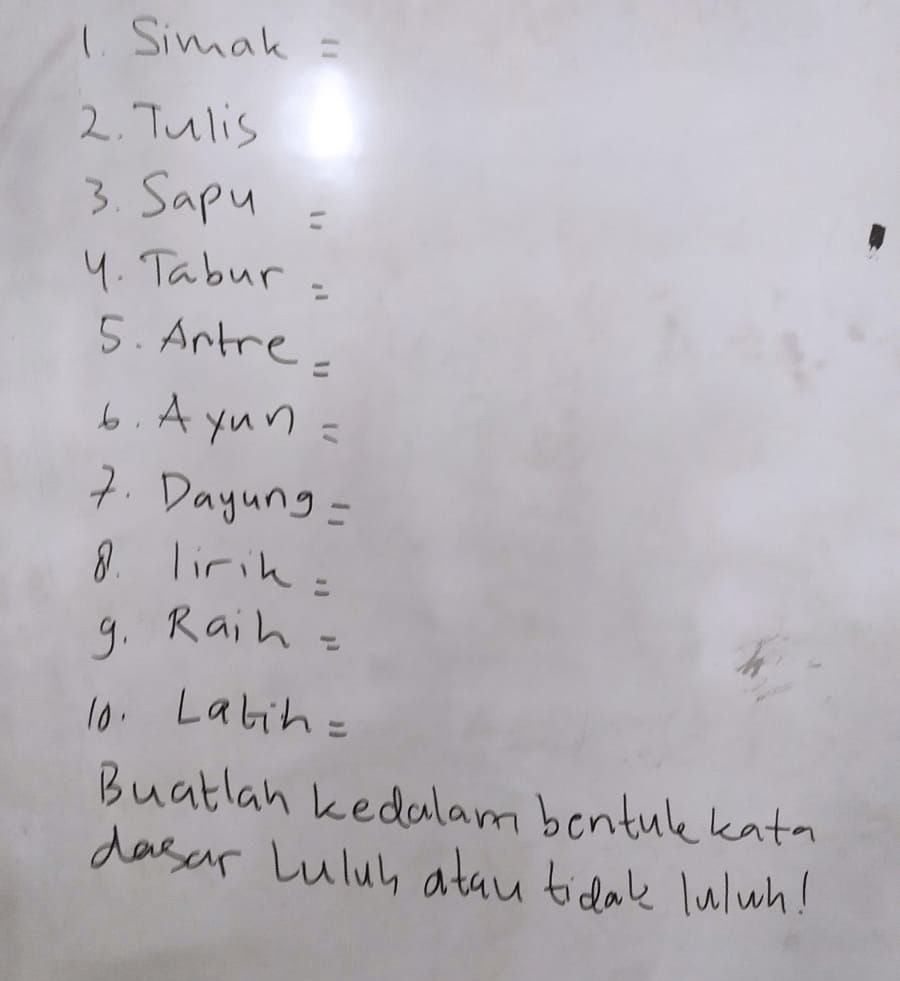 1. Simak =
2. Tulis
3. Sapu =
4. Tabur =
5. Antre =
6. Ayun =
7. Dayung =
8. lirik =
9. Raih =
10. Latih =
Buatlah kedalam bentuk kata
dasar Luluh atau tidak luluh!